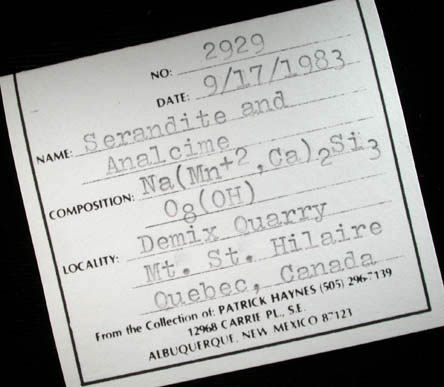 NO: 2929
DATE: 9/17/1983
NAME: Serandite and
Analcime
COMPOSITION: Na(Mn+2,Ca)2Si3
O8(OH)
LOCALITY: Demix Quarry
Mt. St. Hilaire
Quebec, Canada
From the Collection of: PATRICK HAYNES (505) 296-7139
12968 CARRIE PL., S.E.
ALBUQUERQUE, NEW MEXICO 87123